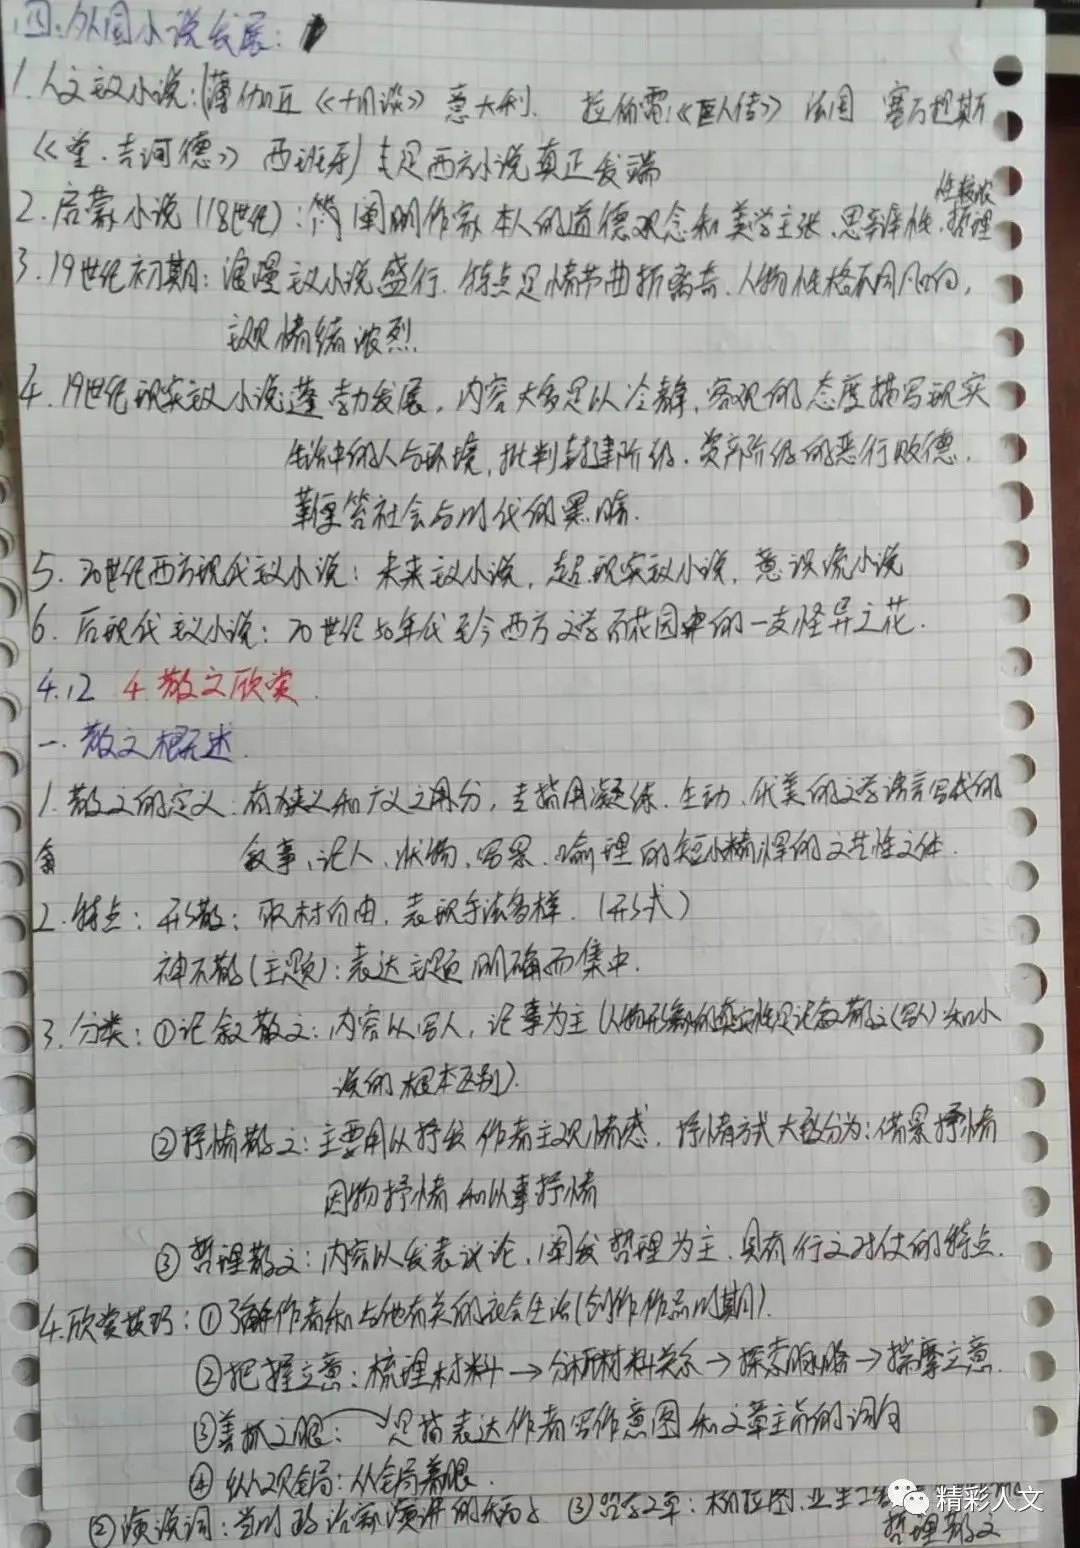 四.外国小说发展:
1.人文主义小说:(薄伽丘《十日谈》 意大利. 拉伯雷:《巨人传》 法国 塞万提斯
《堂.吉诃德》 西班牙) 是西方小说真正发端
性较浓
2.启蒙小说(18世纪): 阐明作家本人的道德观念和美学主张.思辩性.哲理
3.19世纪初期:浪漫主义小说盛行.特点是情节曲折离奇.人物性格不同凡响,
主观情绪浓烈.
4.19世纪现实主义小说蓬勃发展.内容大多是以冷静,客观的态度描写现实
生活中的人与环境,批判封建阶级.资产阶级的恶行败德.
鞭笞社会与时代的黑暗.
5.20世纪西方现代主义小说:未来主义小说,超现实主义小说,意识流小说
6.后现代主义小说:20世纪50年代至今西方文学百花园中的一支怪异之花.
4.12 4散文欣赏.
一.散文概述.
1.散文的定义:有狭义和广义之用分,主指用凝练.生动.优美的文学语言写成的
叙事,记人,状物,写景.喻理的短小精悍的文艺性文体.
2.特点:形散:取材自由,表现手法多样.(形式)
神不散(主题):表达主题明确而集中.
3.分类:①记叙散文:内容以写人,记事为主(人物形象的真实性是记叙散文(写人)和小
说的根本区别).
②抒情散文:主要用以抒发作者主观情感,抒情方式大致分为:借景抒情
因物抒情和以事抒情
③哲理散文:内容以发表议论,阐发哲理为主.具有行文对仗的特点.
4.欣赏技巧:①了解作者和与他有关的社会生活(创作作品时期).
②把握立意:梳理材料→分析材料关系→探索脉络→揣摩立意.
③善抓文眼: 是指表达作者写作意图和文章主旨的词句
④纵观全局:从全局着眼.
②演说词:当时政治家演讲的 ③哲学文章:柏拉图,亚里士
哲理散文
精彩人文